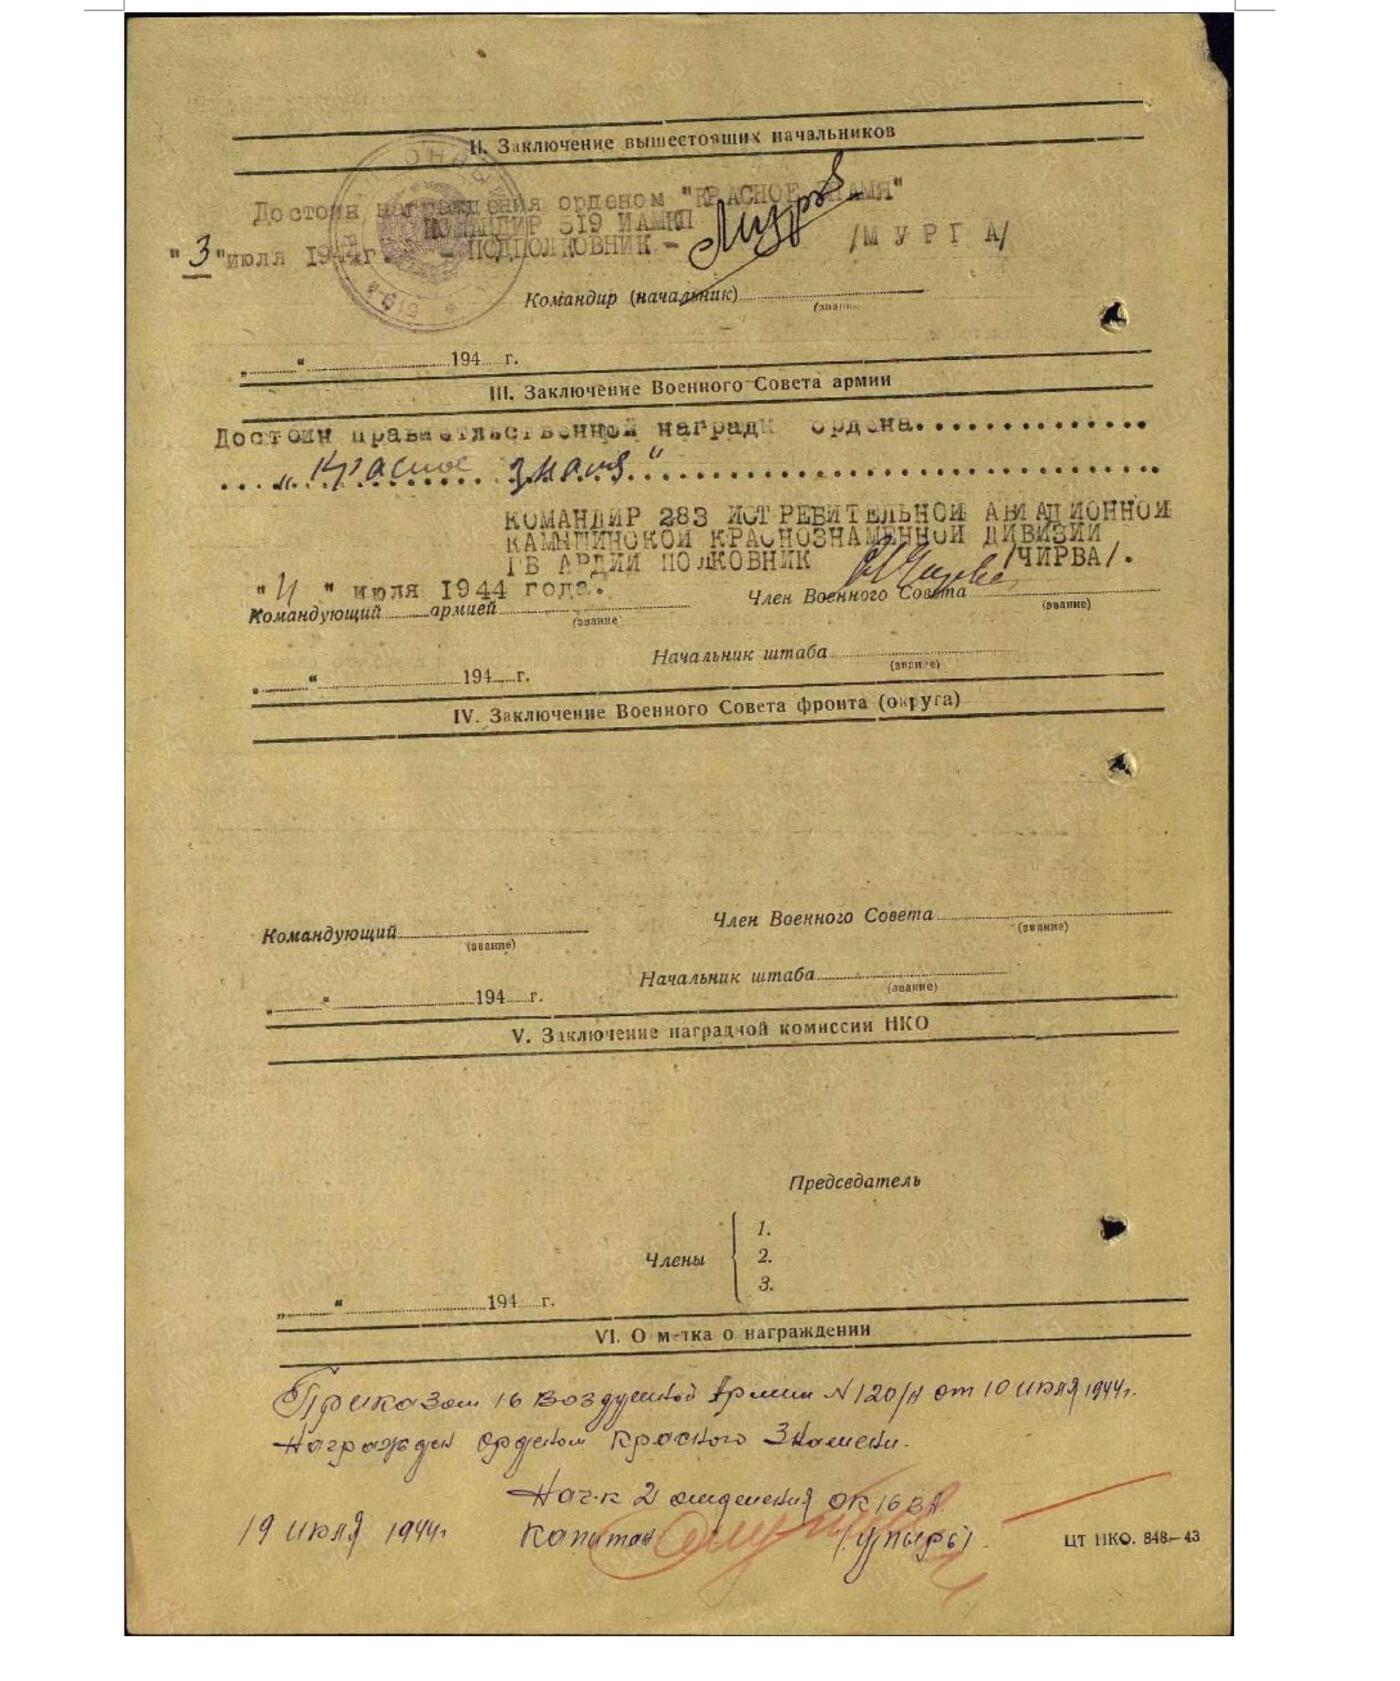 II. Заключение вышестоящих начальников
Достоин награждения орденом "КРАСНОЕ ЗНАМЯ"
КОМАНДИР 519 ИАМКП
"3" июля 1944г. ПОДПОЛКОВНИК - /МУРГА/
Командир (начальник)
(звание
„ “ 194 г.
III. Заключение Военного Совета армии
Достоин правительственной награды ордена..............
"Красное знамя"
КОМАНДИР 283 ИСТРЕБИТЕЛЬНОЙ АВИАЦИОННОЙ
КАМЫШИНСКОЙ КРАСНОЗНАМЕННОЙ ДИВИЗИИ
ГВАРДИИ ПОЛКОВНИК /ЧИРВА/.
"4" июля 1944 года.
Командующий армией Член Военного Совета
(звание (звание)
Начальник штаба
(звание)
„ “ 194 г.
IV. Заключение Военного Совета фронта (округа)
Командующий Член Военного Совета
(звание) (звание)
Начальник штаба
(звание)
„ “ 194 г.
V. Заключение наградной комиссии НКО
Председатель
1.
Члены 2.
3.
„ “ 194 г.
VI. О м-тка о награждении
Приказом 16 Воздушной Армии N 120/н от 10 июля 1944г.
Награжден орденом Красного Знамени.
Нач-к 2 отделения ОК 16 ВА
19 июля 1944г Капитан (Упырь)
ЦТ НКО. 848—43